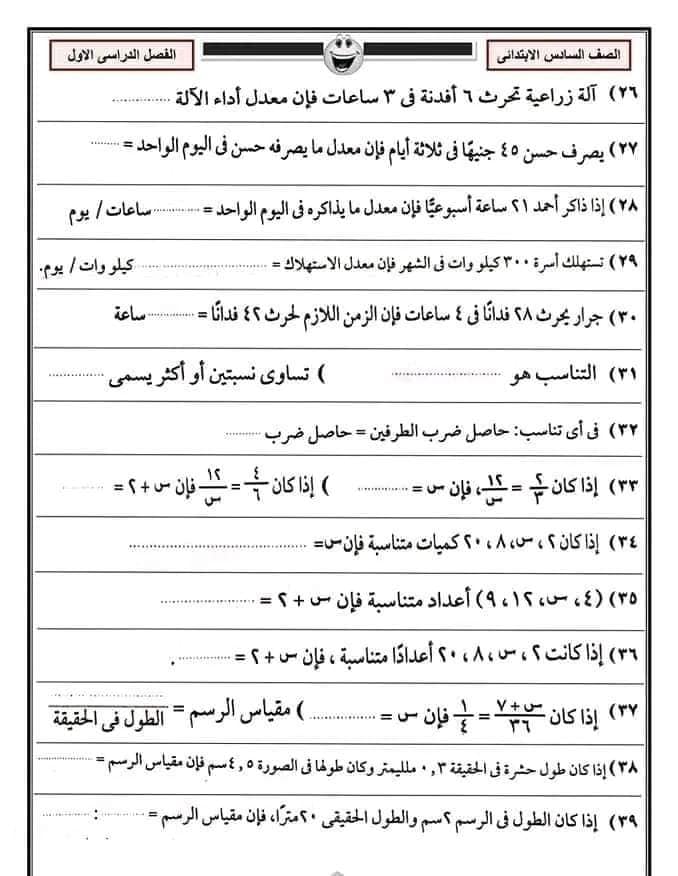 الصف السادس الابتدائى
الفصل الدراسى الاول
٢٦) آلة زراعية تحرث ٦ أفدنة فى ٣ ساعات فإن معدل أداء الآلة ............
٢٧) يصرف حسن ٤٥ جنيهًا فى ثلاثة أيام فإن معدل ما يصرفه حسن فى اليوم الواحد = ........
٢٨) إذا ذاكر أحمد ٢١ ساعة أسبوعيًّا فإن معدل ما يذاكره فى اليوم الواحد = ............ ساعات / يوم
٢٩) تستهلك أسرة ٣٠٠ كيلو وات فى الشهر فإن معدل الاستهلاك = ............ كيلو وات / يوم.
٣٠) جرار يحرث ٢٨ فدانًا فى ٤ ساعات فإن الزمن اللازم لحرث ٤٢ فدانًا = ............ ساعة
٣١) التناسب هو ............ ) تساوى نسبتين أو أكثر يسمى ............
٣٢) فى أى تناسب: حاصل ضرب الطرفين = حاصل ضرب ..........
٣٣) إذا كان ٢/٣ = ١٢/س، فإن س = ............ ) إذا كان ٤/٦ = ١٢/س فإن س + ٢ = ..........
٣٤) إذا كان ٢ ، س، ٨ ، ٢٠ كميات متناسبة فإن س= ............
٣٥) (٤ ، س، ١٢، ٩) أعداد متناسبة فإن س + ٢ = ............
٣٦) إذا كانت ٢ ، س ، ٨ ، ٢٠ أعدادًا متناسبة ، فإن س + ٢ = ............ .
٣٧) إذا كان س + ٧/٣٦ = ١/٤ فإن س = ............ ) مقياس الرسم = ............/الطول فى الحقيقة
٣٨) إذا كان طول حشرة فى الحقيقة ٠,٣ ملليمتر وكان طولها فى الصورة ٤,٥ سم فإن مقياس الرسم = ............
٣٩) إذا كان الطول فى الرسم ٢سم والطول الحقيقى ٢٠مترًا، فإن مقياس الرسم = ............ : ............